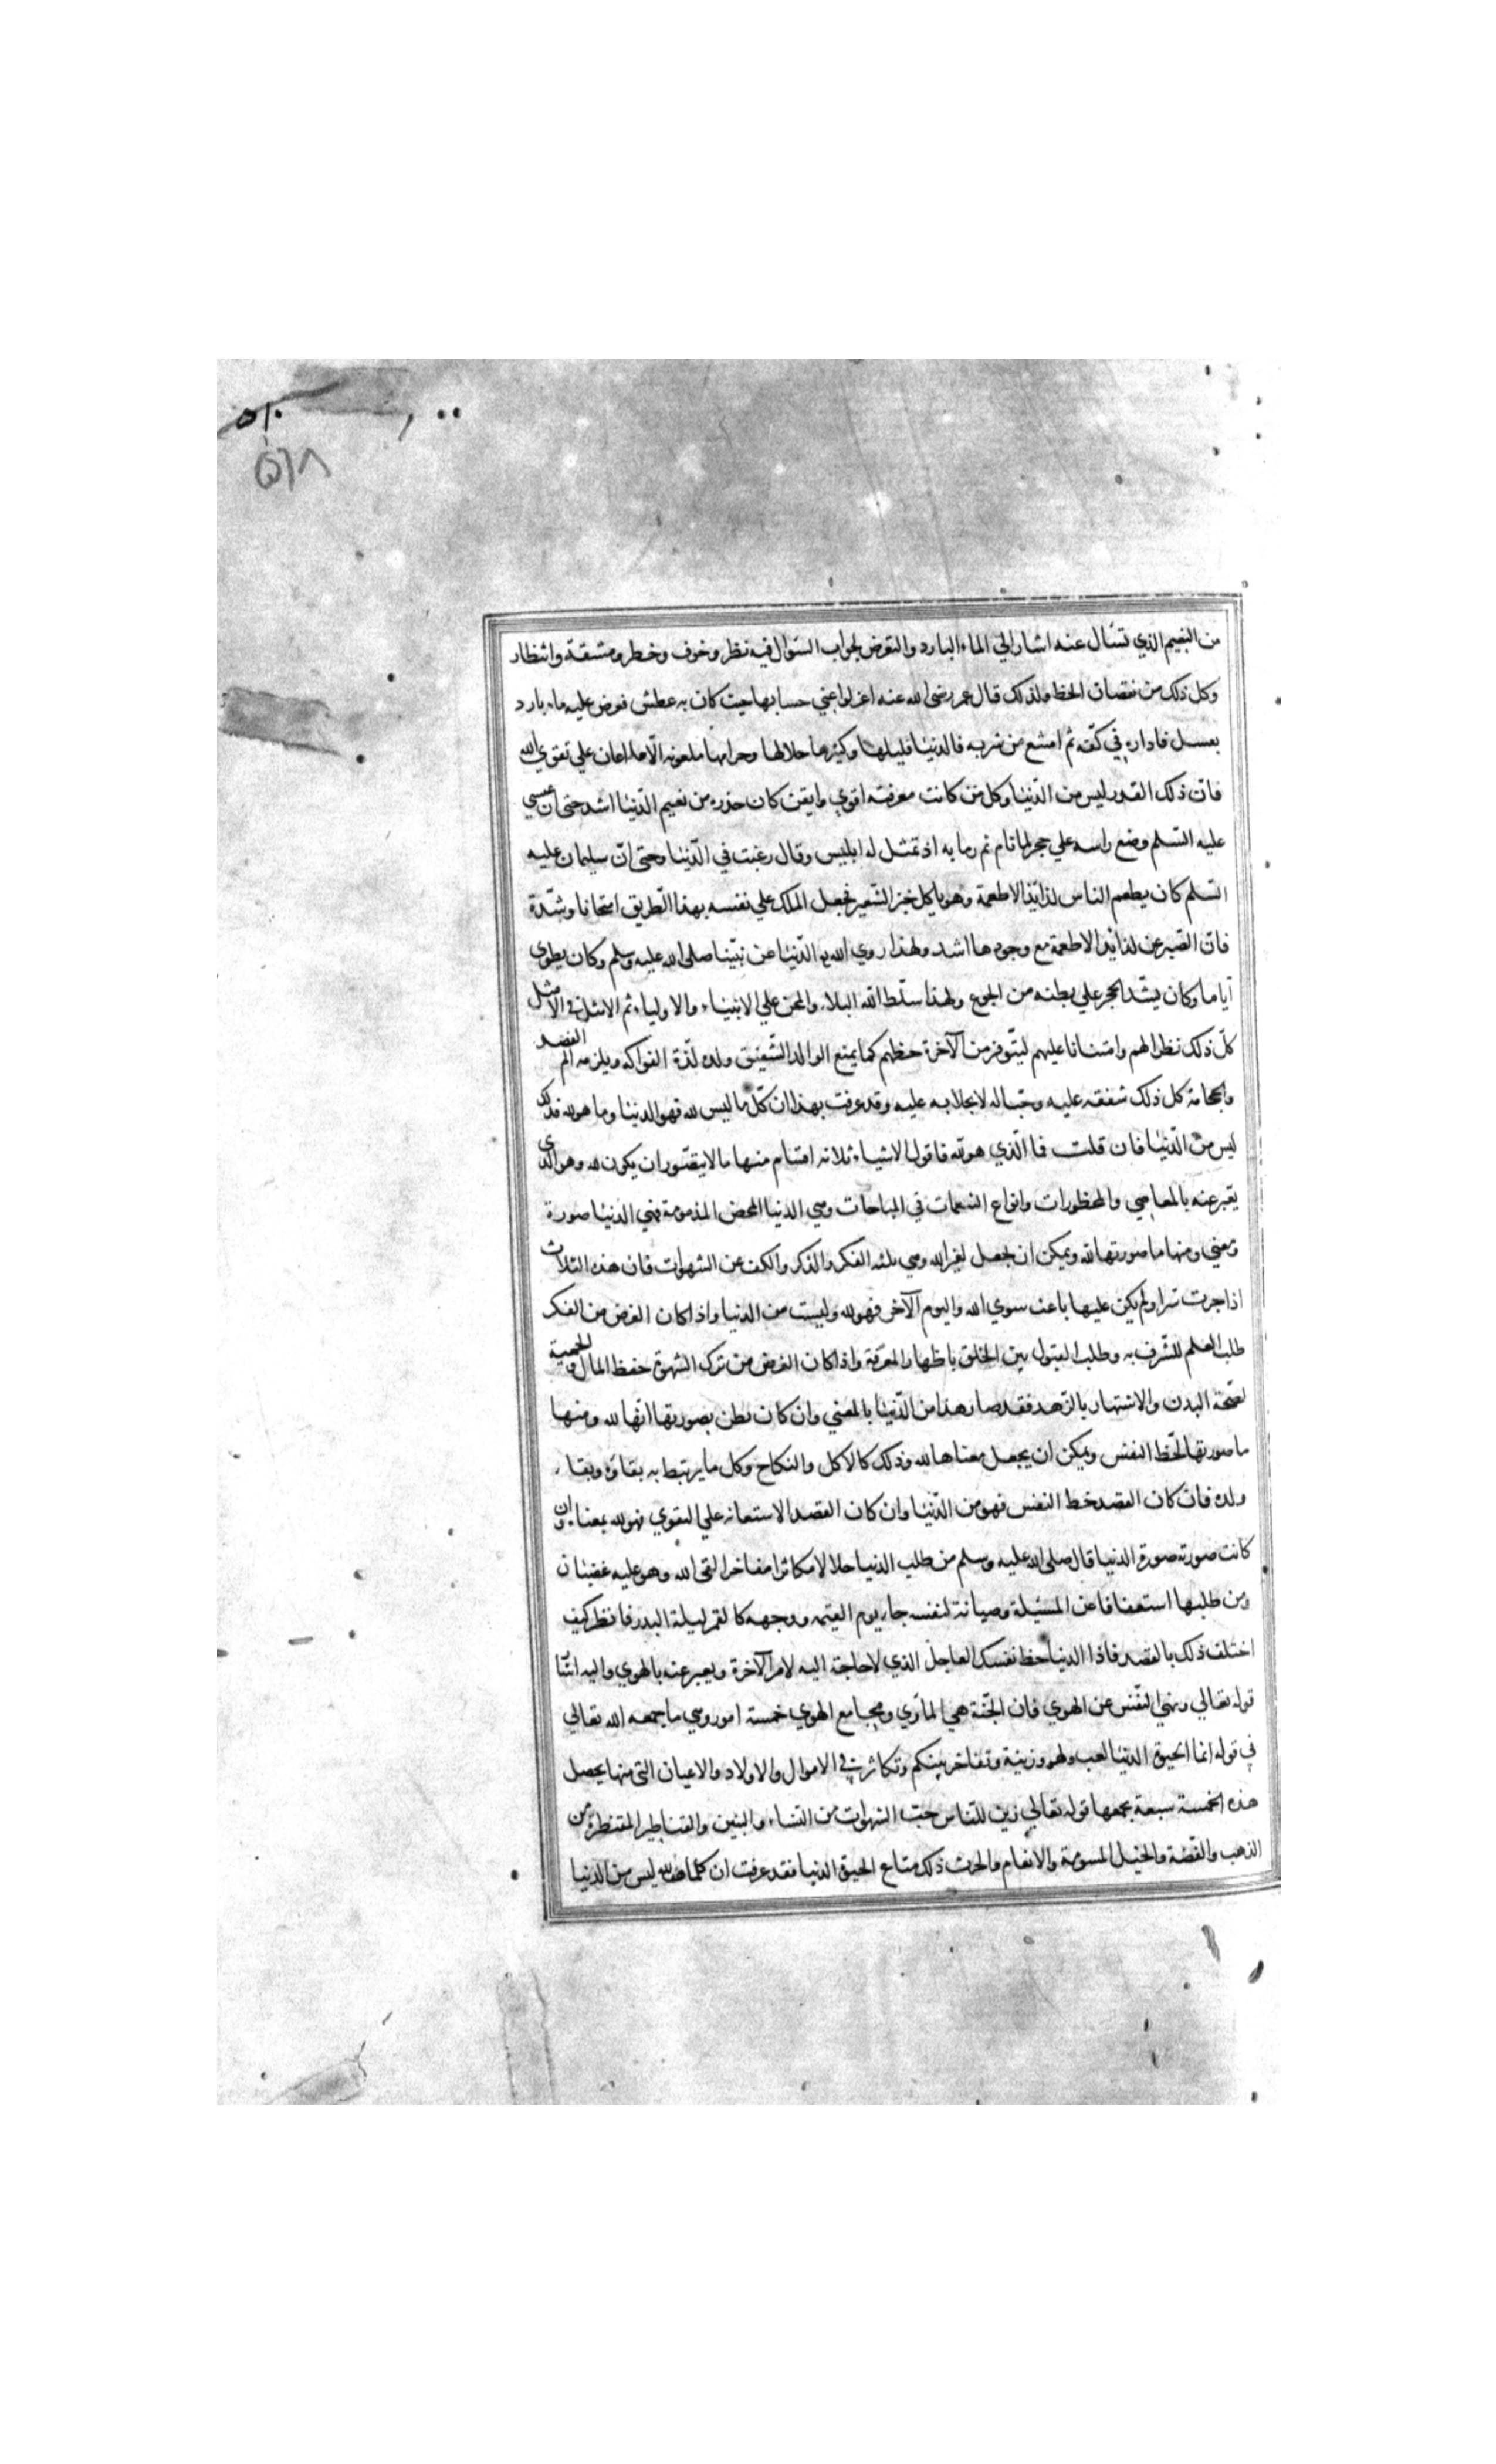 ٥١٠
٥٦٨
من النعيم الذي تسأل عنه اشار الي الماء البارد والتعرض لجواب السؤال فيه نظر وخوف وخطر ومشقة وانتظار
وكل ذلك من نقصان الحظ ولذلك قال عمر رضى الله عنه اعزلوا عني حسابها حيت كان به عطش فعرض عليه ماء بارد
بعسل فاداره في كفه ثم امتنع من شربه فالدنيا قليلها وكثيرها حلالها وحرامها ملعونه الا ما اعان علي تقوي الله
فان ذلك القدر ليس من الدنيا وكل من كانت معرفته اقوي وايقن كان حذره من نعيم الدنيا اشد حتى ان عيسي
عليه السلم وضع راسه علي حجر لما نام ثم رما به اذ تمثل له ابليس وقال رغبت في الدنيا وحتى ان سليمان عليه
السلم كان يطعم الناس لذايذ الاطعمة وهو ياكل خبز الشعير فجعل الملك علي نفسه بهذا الطريق امتحانا وشدة
فان الصبر عن لذايذ الاطعمة مع وجودها اشد ولهذا روي الله الدنيا عن نبينا صلى الله عليه وسلم وكان يطوي
اياما وكان يشد الحجر علي بطنه من الجوع ولهذا سلط الله البلاء والمحن علي الانبياء والاولياء ثم الامثل فالامثل
كل ذلك نظرا لهم وامتنانا عليهم ليتوفر من الآخرة حظهم كما يمنع الوالد الشفيق ولده لذة الفواكه ويلزمه الم الفصد
والحجامة كل ذلك شفقه عليه وحبا له لا بخلا به عليه وقد عرفت بهذا ان كل ما ليس لله فهو الدنيا وما هو لله فذلك
ليس من الدنيا فان قلت فما الذي هو لله فاقول الاشياء ثلاثه اقسام منها ما لا يتصور ان يكون لله وهو الذي
يعبر عنه بالمعاصي والمحظورات وانواع التنعمات في المباحات وهي الدنيا المحض المذمومة فهي الدنيا صورة
ومعني ومنها ما صورتها لله ويمكن ان يجعل لغير الله وهي ثلثه الفكر والذكر والكف عن الشهوات فان هذه الثلاث
اذا جرت سرا ولم يكن عليها باعث سوي الله واليوم الآخر فهو لله وليست من الدنيا واذا كان الغرض من الفكر
طلب العلم للتشرف به وطلب القبول بين الخلق باظهار المعرفة واذا كان الغرض من ترك الشهوة حفظ المال والحمية
لصحة البدن والاشتهار بالزهد فقد صار هذا من الدنيا بالمعني وان كان يظن بصورتها انها لله ومنها
ما صورتها لحظ النفس ويمكن ان يجعل معناها لله وذلك كالاكل والنكاح وكل ما يرتبط به بقاؤه وبقاء
ولده فان كان القصد حظ النفس فهو من الدنيا وان كان القصد الاستعانه علي التقوي فهو لله بمعناه وان
كانت صورته صورة الدنيا قال صلى الله عليه وسلم من طلب الدنيا حلالا مكاثرا مفاخرا لقى الله وهو عليه غضبان
ومن طلبها استعفافا عن المسئلة وصيانة لنفسه جاء يوم القيمه ووجهه كالقمر ليلة البدر فانظر كيف
اختلف ذلك بالقصد فاذا الدنيا حظ نفسك العاجل الذي لا حاجة اليه لامر الآخرة ويعبر عنه بالهوي واليه اشار
قوله تعالي ونهي النفس عن الهوي فان الجنة هي المأوي ومجامع الهوي خمسة امور وهي ما جمعه الله تعالي
في قوله انما الحيوة الدنيا لعب ولهو وزينة وتفاخر بينكم وتكاثر في الاموال والاولاد والاعيان التي منها يحصل
هذه الخمسة سبعة يجمعها قوله تعالي زين للناس حب الشهوات من النساء والبنين والقناطير المقنطرة من
الذهب والفضة والخيل المسومة والانعام والحرث ذلك متاع الحيوة الدنيا فقد عرفت ان كلما هو لله ليس من الدنيا